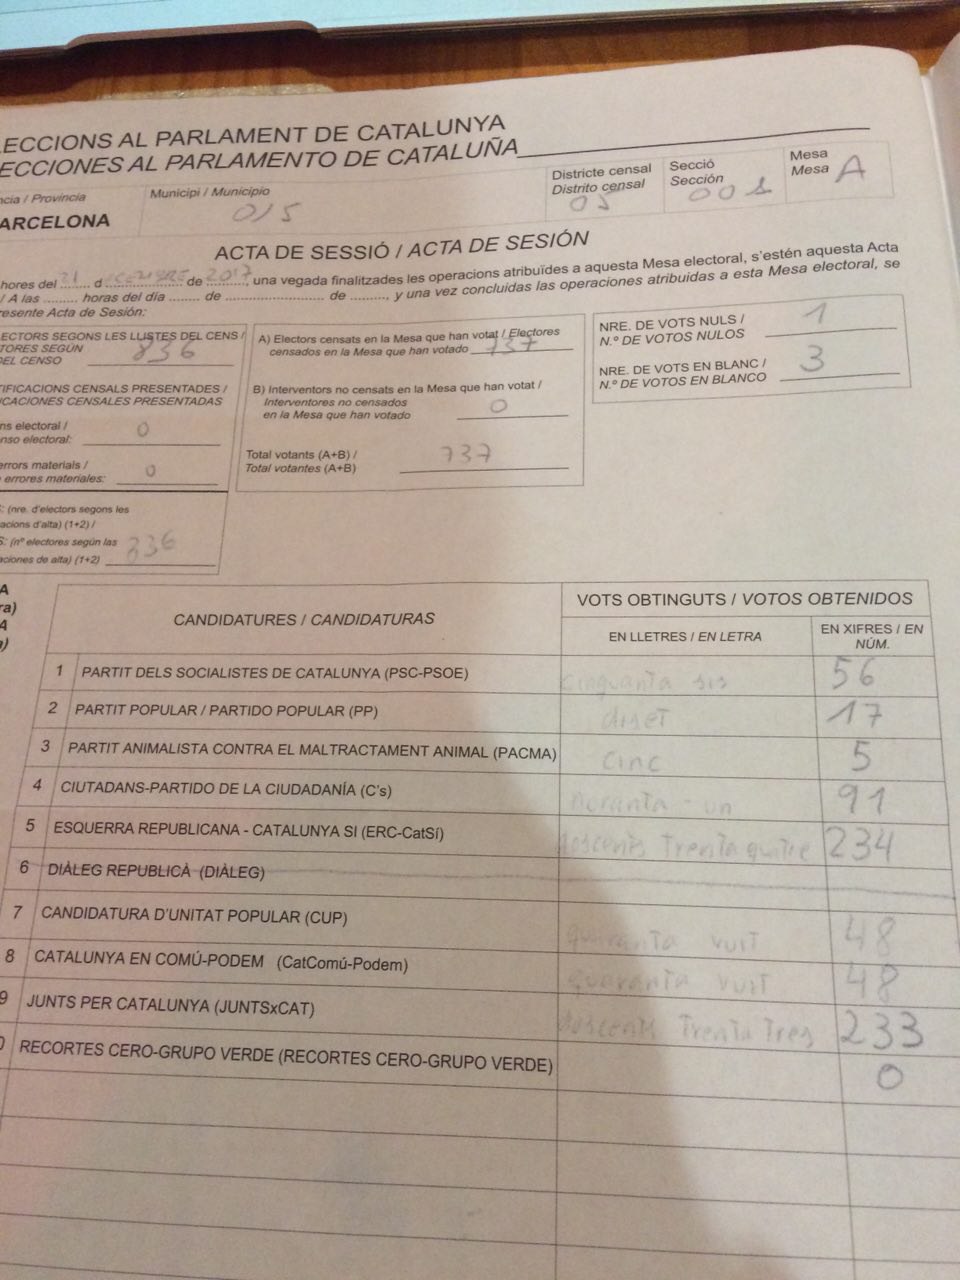 LECCIONS AL PARLAMENT DE CATALUNYA
ECCIONES AL PARLAMENTO DE CATALUÑA
ncia / Provincia
ARCELONA
Municipi / Municipio
015
Districte censal
Distrito censal
05
Secció
Sección
001
Mesa
Mesa
A
ACTA DE SESSIÓ / ACTA DE SESIÓN
hores del 21 d desembre de 2017, una vegada finalitzades les operacions atribuïdes a aquesta Mesa electoral, s'estén aquesta Acta
/ A las ......... horas del día ........ de ......................... de ........., y una vez concluidas las operaciones atribuidas a esta Mesa electoral, se
resente Acta de Sesión:
ECTORS SEGONS LES LLISTES DEL CENS /
TORES SEGÚN
DEL CENSO
836
TIFICACIONS CENSALS PRESENTADES /
ICACIONES CENSALES PRESENTADAS
ns electoral /
nso electoral:
0
errors materials /
e errores materiales:
0
S: (nre. d'electors segons les
acions d'alta) (1+2) /
S: (nº electores según las
aciones de alta) (1+2)
836
A) Electors censats en la Mesa que han votat / Electores
censados en la Mesa que han votado
737
B) Interventors no censats en la Mesa que han votat /
Interventores no censados
en la Mesa que han votado
0
Total votants (A+B) /
Total votantes (A+B)
737
NRE. DE VOTS NULS /
N.º DE VOTOS NULOS
1
NRE. DE VOTS EN BLANC /
N.º DE VOTOS EN BLANCO
3
A
ra)
A
a)
CANDIDATURES / CANDIDATURAS
VOTS OBTINGUTS / VOTOS OBTENIDOS
EN LLETRES / EN LETRA
EN XIFRES / EN
NÚM.
1 PARTIT DELS SOCIALISTES DE CATALUNYA (PSC-PSOE) cinquanta sis 56
2 PARTIT POPULAR / PARTIDO POPULAR (PP) diset 17
3 PARTIT ANIMALISTA CONTRA EL MALTRACTAMENT ANIMAL (PACMA) cinc 5
4 CIUTADANS-PARTIDO DE LA CIUDADANÍA (C's) noranta - un 91
5 ESQUERRA REPUBLICANA - CATALUNYA SI (ERC-CatSí) doscents trenta quatre 234
6 DIÀLEG REPUBLICÀ (DIÀLEG)
7 CANDIDATURA D'UNITAT POPULAR (CUP) quaranta vuit 48
8 CATALUNYA EN COMÚ-PODEM (CatComú-Podem) quaranta vuit 48
9 JUNTS PER CATALUNYA (JUNTSxCAT) doscents trenta tres 233
0 RECORTES CERO-GRUPO VERDE (RECORTES CERO-GRUPO VERDE) 0